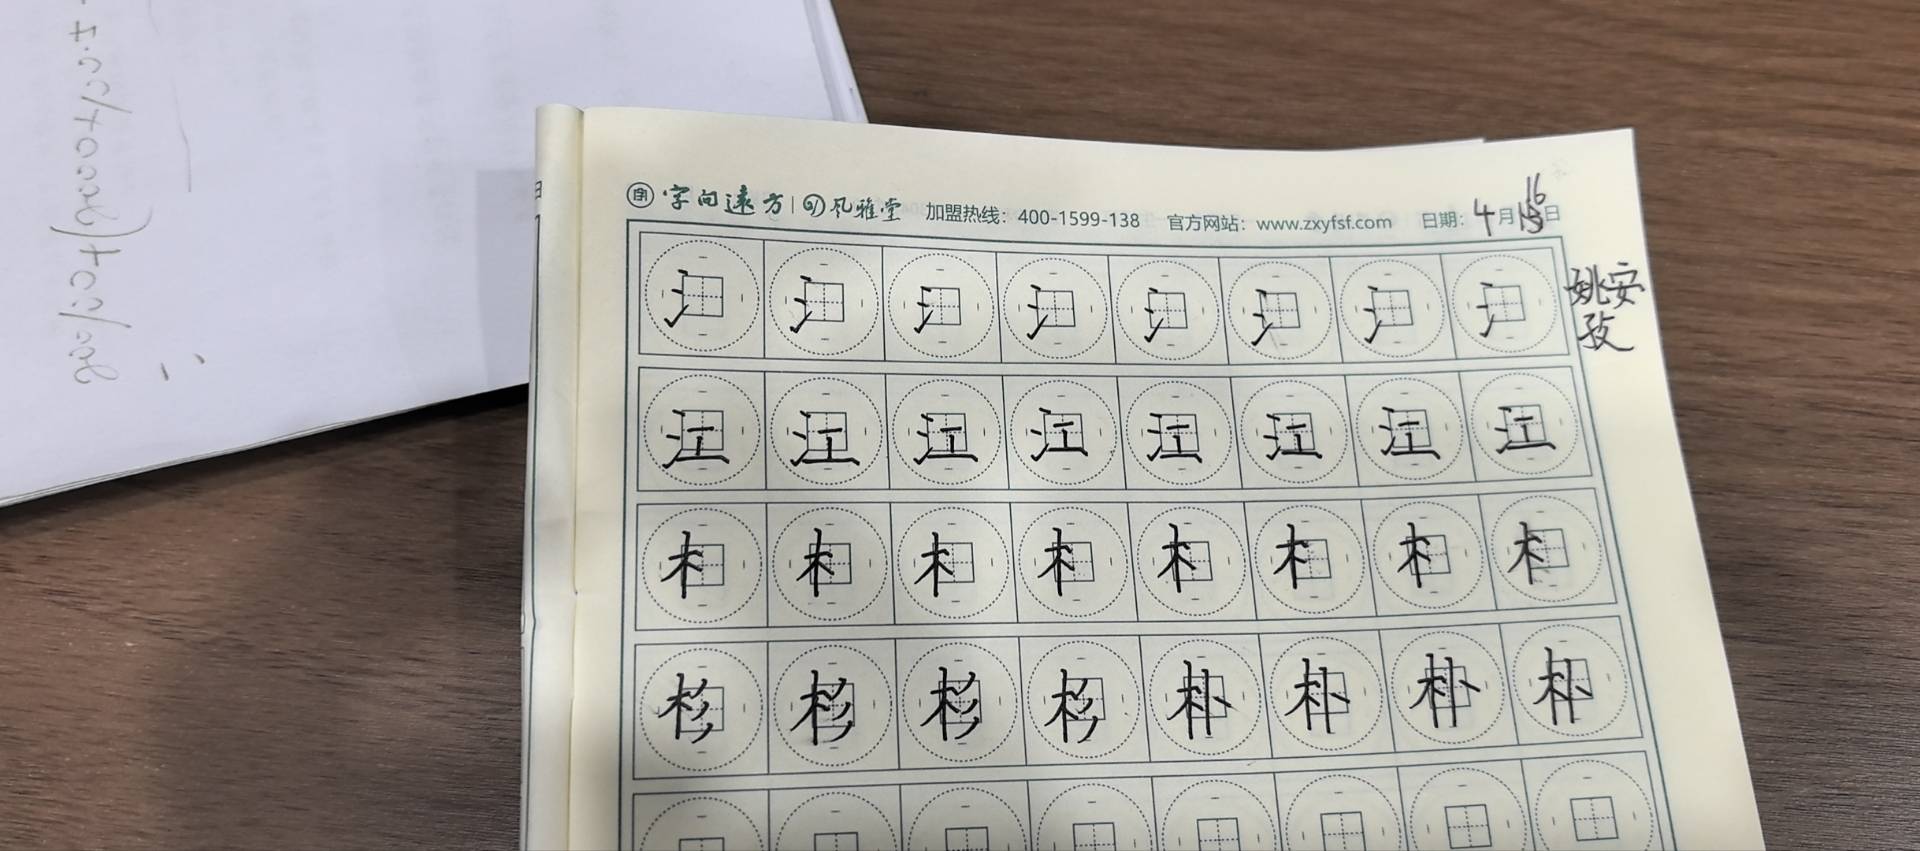 字向远方 | 风雅堂 加盟热线：400-1599-138 官方网站：www.zxyfsf.com 日期：4月16日
姚安
孜
氵 氵 氵 氵 氵 氵 氵 氵
江 江 江 江 江 江 江 江
木 木 木 木 木 木 木 木
杉 杉 杉 杉 朴 朴 朴 朴